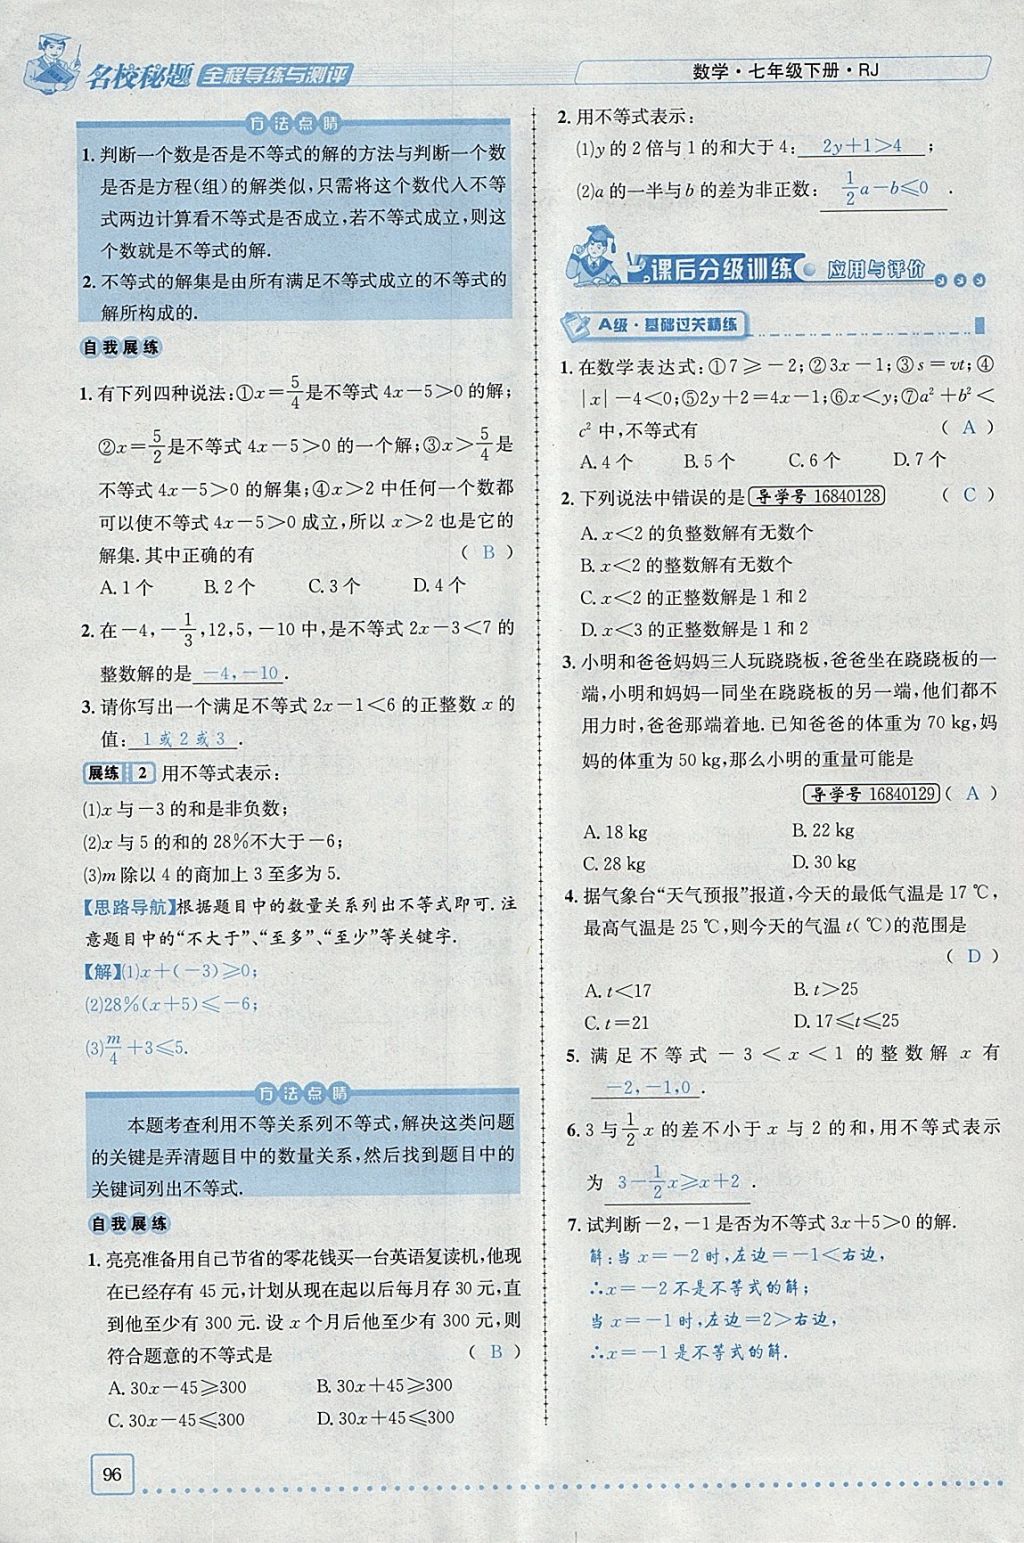 名校秘题 全程导练与测评
数学·七年级下册·RJ
方法点睛
1. 判断一个数是否是不等式的解的方法与判断一个数
是否是方程(组)的解类似,只需将这个数代入不等
式两边计算看不等式是否成立,若不等式成立,则这
个数就是不等式的解.
2. 不等式的解集是由所有满足不等式成立的不等式的
解所构成的.
自我展练
1. 有下列四种说法:①x=5/4是不等式4x-5>0的解;
②x=5/2是不等式4x-5>0的一个解;③x>5/4是
不等式4x-5>0的解集;④x>2中任何一个数都
可以使不等式4x-5>0成立,所以x>2也是它的
解集.其中正确的有 ( B )
A.1个 B.2个 C.3个 D.4个
2. 在-4,-1/3,12,5,-10中,是不等式2x-3<7的
整数解的是 -4,-10 .
3. 请你写出一个满足不等式2x-1<6的正整数x的
值: 1或2或3 .
展练 2 用不等式表示:
(1)x与-3的和是非负数;
(2)x与5的和的28%不大于-6;
(3)m除以4的商加上3至多为5.
【思路导航】根据题目中的数量关系列出不等式即可.注
意题目中的“不大于”、“至多”、“至少”等关键字.
【解】(1)x+(-3)≥0;
(2)28%(x+5)≤-6;
(3)m/4+3≤5.
方法点睛
本题考查利用不等关系列不等式,解决这类问题
的关键是弄清题目中的数量关系,然后找到题目中的
关键词列出不等式.
自我展练
1. 亮亮准备用自己节省的零花钱买一台英语复读机,他现
在已经存有45元,计划从现在起以后每月存30元,直
到他至少有300元.设x个月后他至少有300元,则
符合题意的不等式是 ( B )
A.30x-45≥300 B.30x+45≥300
C.30x-45≤300 D.30x+45≤300
96
2. 用不等式表示:
(1)y的2倍与1的和大于4: 2y+1>4 ;
(2)a的一半与b的差为非正数: 1/2a-b≤0 .
课后分级训练 应用与评价
A级·基础过关精练
1. 在数学表达式:①7≥-2;②3x-1;③s=vt;④
|x|-4<0;⑤2y+2=4x-1;⑥x<y;⑦a²+b²<
c²中,不等式有 ( A )
A.4个 B.5个 C.6个 D.7个
2. 下列说法中错误的是 导学号16840128 ( C )
A.x<2的负整数解有无数个
B.x<2的整数解有无数个
C.x<2的正整数解是1和2
D.x<3的正整数解是1和2
3. 小明和爸爸妈妈三人玩跷跷板,爸爸坐在跷跷板的一
端,小明和妈妈一同坐在跷跷板的另一端,他们都不
用力时,爸爸那端着地.已知爸爸的体重为70 kg,妈
妈的体重为50 kg,那么小明的重量可能是
导学号16840129 ( A )
A.18 kg B.22 kg
C.28 kg D.30 kg
4. 据气象台“天气预报”报道,今天的最低气温是17 ℃,
最高气温是25 ℃,则今天的气温t(℃)的范围是
( D )
A.t<17 B.t>25
C.t=21 D.17≤t≤25
5. 满足不等式-3<x<1的整数解x有
-2,-1,0 .
6. 3与1/2x的差不小于x与2的和,用不等式表示
为 3-1/2x≥x+2 .
7. 试判断-2,-1是否为不等式3x+5>0的解.
解:当x=-2时,左边=-1<右边,
∴x=-2不是不等式的解;
当x=-1时,左边=2>右边,
∴x=-1是不等式的解.